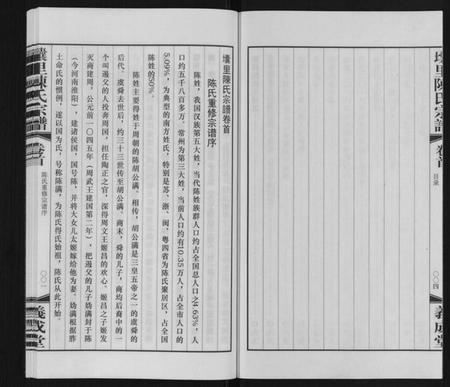 壎里陳氏宗譜
卷首
目录
〇〇四
義成堂
壎里陳氏宗譜卷首
陈氏重修宗谱序
陈姓，我国汉族第五大姓，当代陈姓族群人口约占全国总人口之4.63%，人
口约五千八百多万。常州为第三大姓，当前人口约有10.35万人，占全市人口的
5.09%，为典型的南方姓氏，特别是苏、浙、闽、粤四省为陈氏聚居区，占全国
陈姓的50%。
陈姓主要得姓于周朝的陈胡公满。相传，胡公满是三皇五帝之一的虞舜的
后代。虞舜去世后，约三十三世传至胡公满。商末，舜的儿子，商均后裔中的一
个叫遏父的人投奔周国，担任陶正之官，深得周文王姬昌的欢心。姬昌之子姬发
灭商建周，公元前一〇四五年（周武王建国第二年），把遏父的儿子妫满封于陈
（今河南淮阳），建诸侯国，国号陈，并将大女儿太姬嫁给他为妻。妫满根据胙
土命氏的惯例，遂以国为氏，号称陈满，为陈氏得氏始祖，陈氏从此开始。
壎里陳氏宗譜
卷首
陈氏重修宗谱序
〇〇一
義成堂